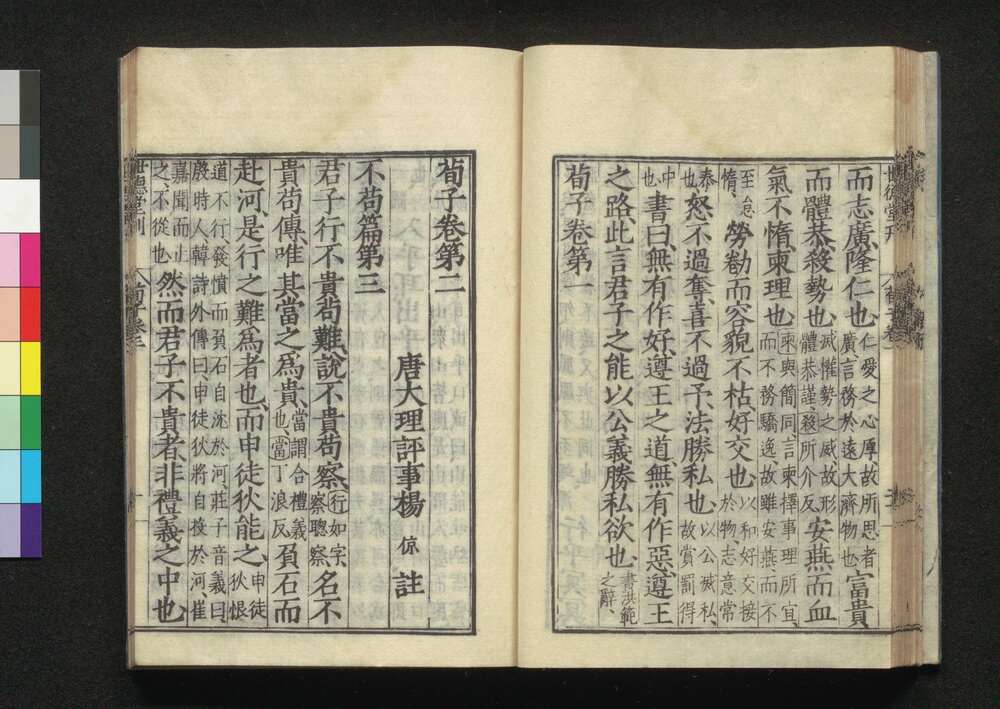 而志廣、隆仁也、仁愛之心厚故所思者廣、言務於遠大濟物也、富貴、
而體恭、殺勢也、減權勢之威故形體恭謹、殺所介反、安燕而血
氣不惰、柬理也、柬與簡同、言柬擇事理所宜、而不務驕逸、故雖安燕、而不
至怠惰、勞勌而容貌不枯、好交也、以和好交接於物、志意常
泰也、怒不過奪、喜不過予、法勝私也、以公滅私、故賞罰得
中也、書曰、無有作好、遵王之道、無有作惡、遵王
之路、此言君子之能以公義勝私欲也、書洪範之辭、
荀子卷第一
荀子卷第二
唐大理評事楊 倞 註
不苟篇第三
君子行不貴苟難、說不貴苟察、行如字、察聰察、名不
貴苟傳、唯其當之爲貴、當謂合禮義也、當丁浪反、負石而
赴河、是行之難爲者也、而申徒狄能之、申徒狄恨
道不行、發憤而負石自沈於河、莊子音義曰、
殷時人、韓詩外傳曰、申徒狄將自投於河、崔
嘉聞而止之、不從也、然而君子不貴者、非禮義之中也
世德堂刊
荀子卷二